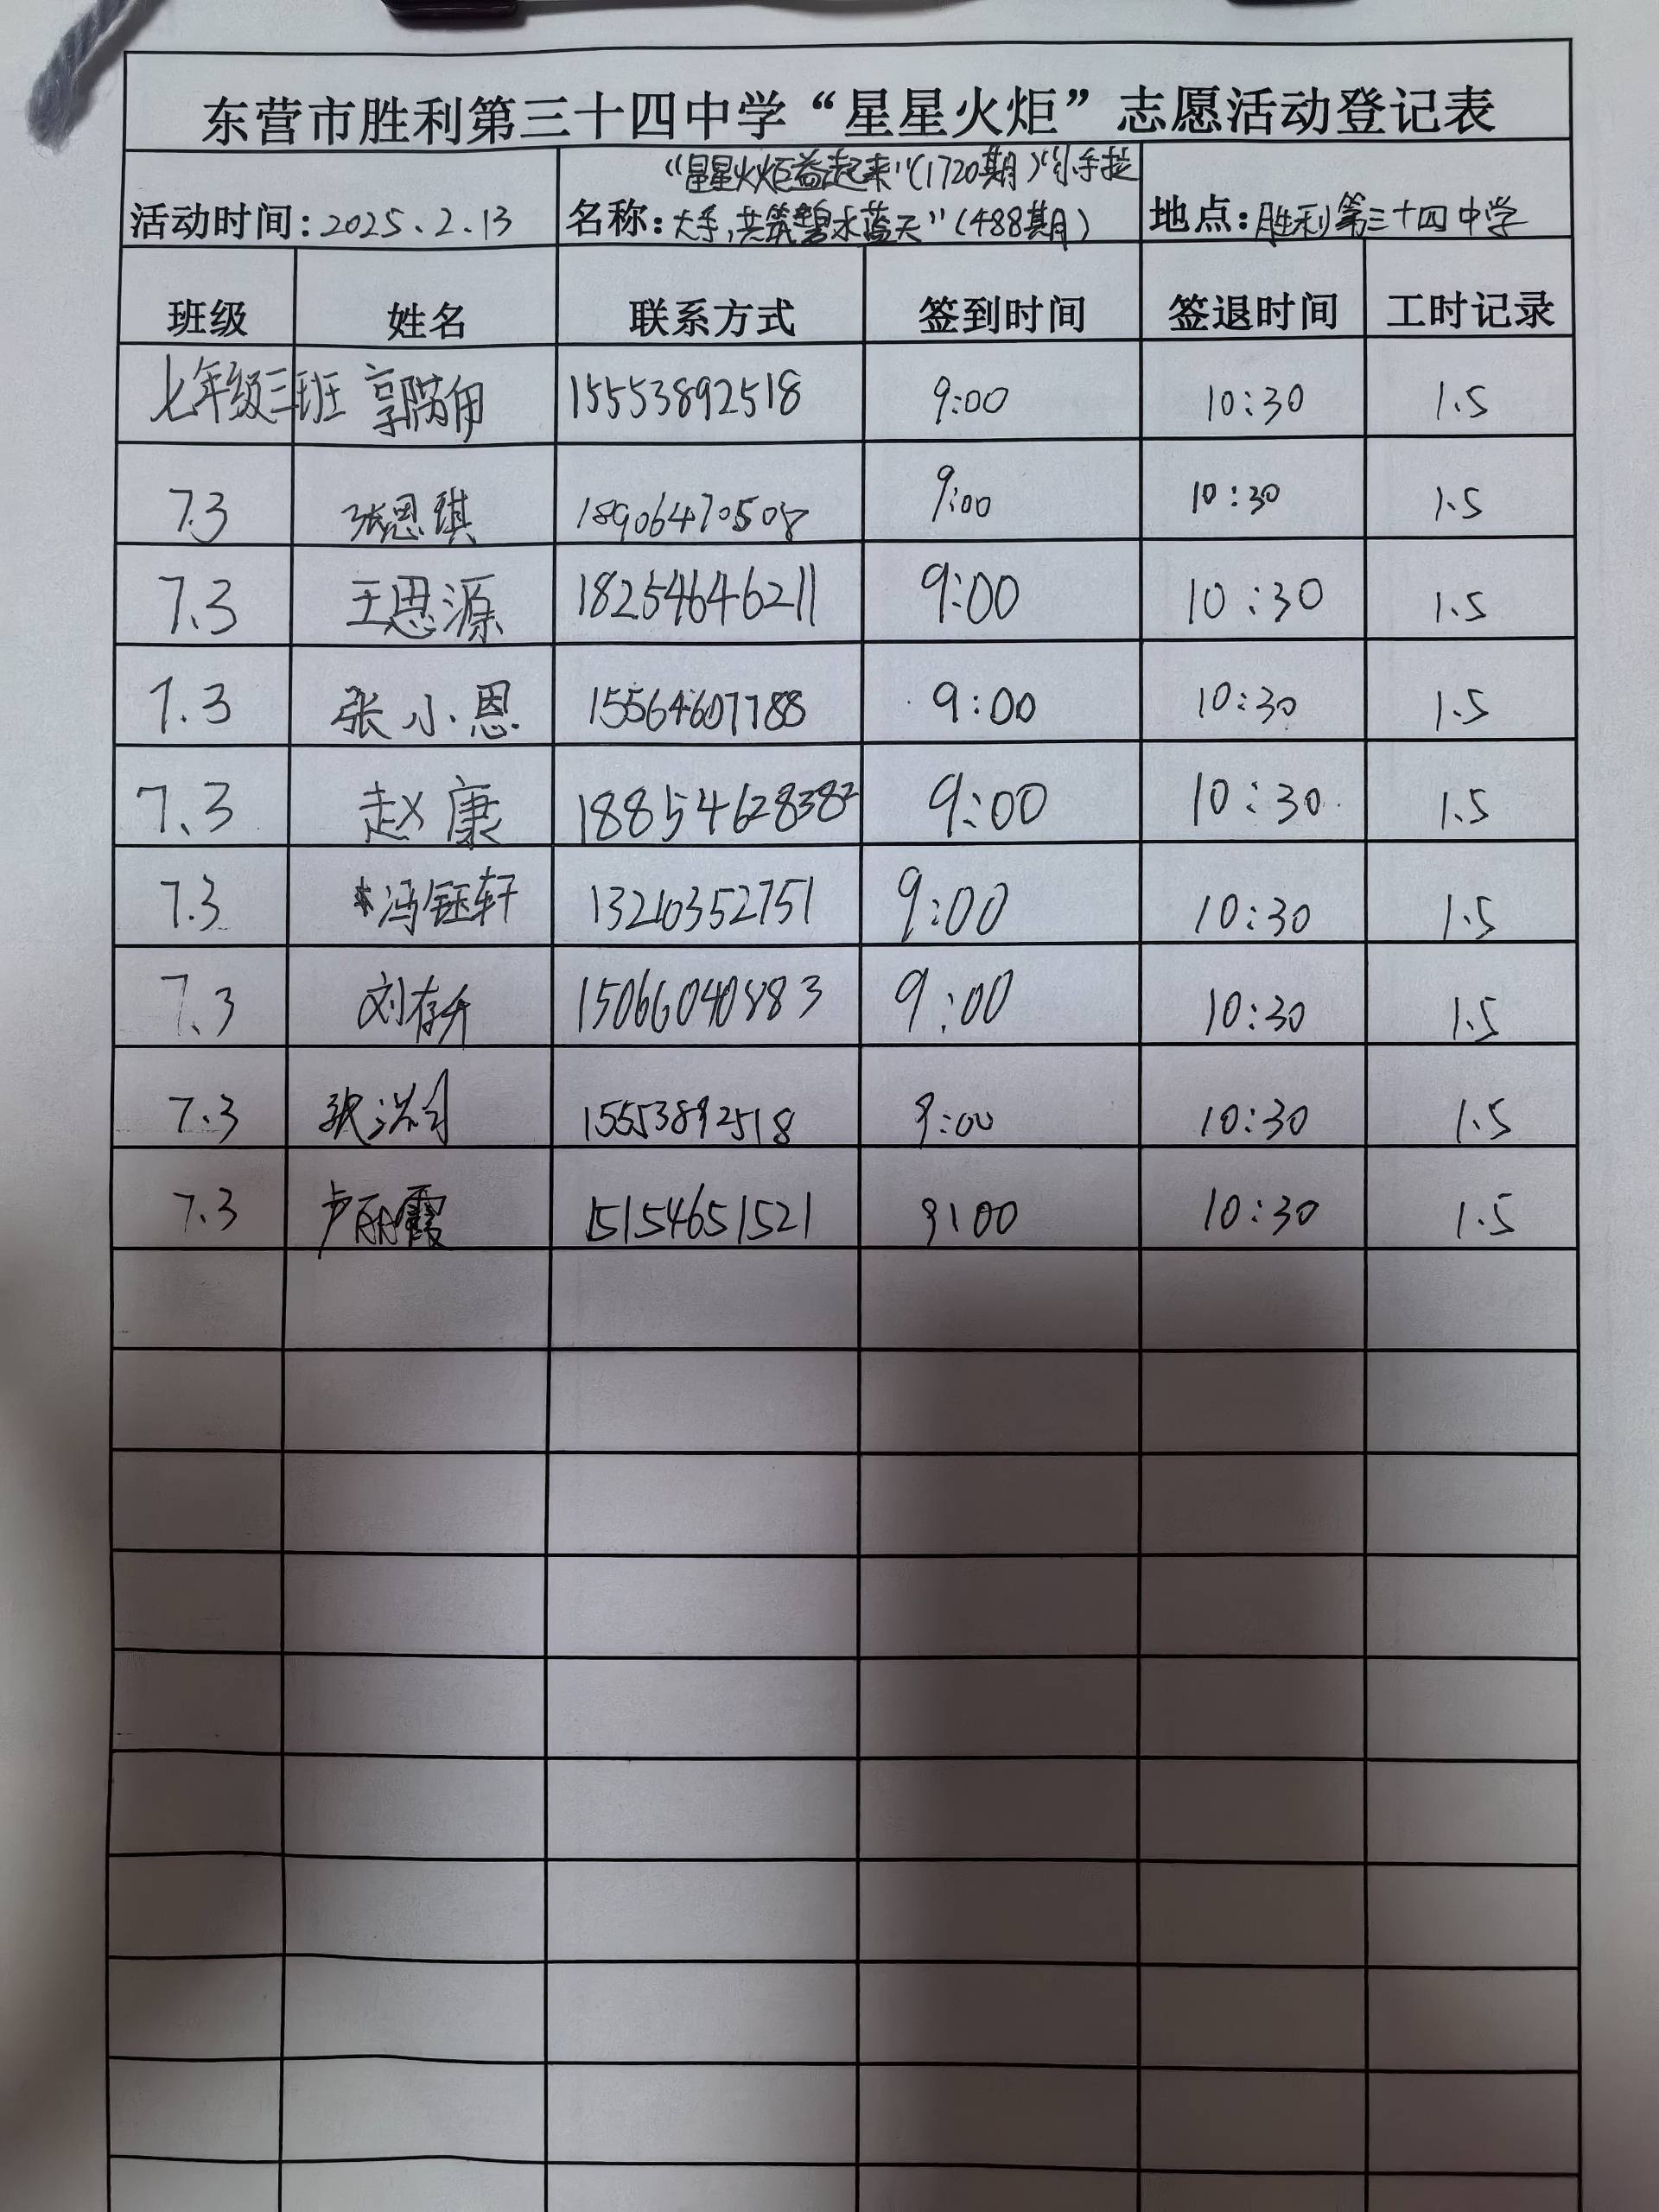 东营市胜利第三十四中学“星星火炬”志愿活动登记表
活动时间：2025.2.13
名称：“星星火炬益起来”（1720期）“小手拉
大手，共筑碧水蓝天”（488期）
地点：胜利第三十四中学
班级 姓名 联系方式 签到时间 签退时间 工时记录
七年级三班 郭芮伊 15553892518 9:00 10:30 1.5
7.3 张恩琪 18906470508 9:00 10:30 1.5
7.3 王恩源 18254646211 9:00 10:30 1.5
7.3 张小恩 15564607788 9:00 10:30 1.5
7.3 赵康 18854628382 9:00 10:30 1.5
7.3 冯钰轩 13210352751 9:00 10:30 1.5
7.3 刘存升 15066040883 9:00 10:30 1.5
7.3 张 15553892518 9:00 10:30 1.5
7.3 卢丽霞 15154651521 9:00 10:30 1.5